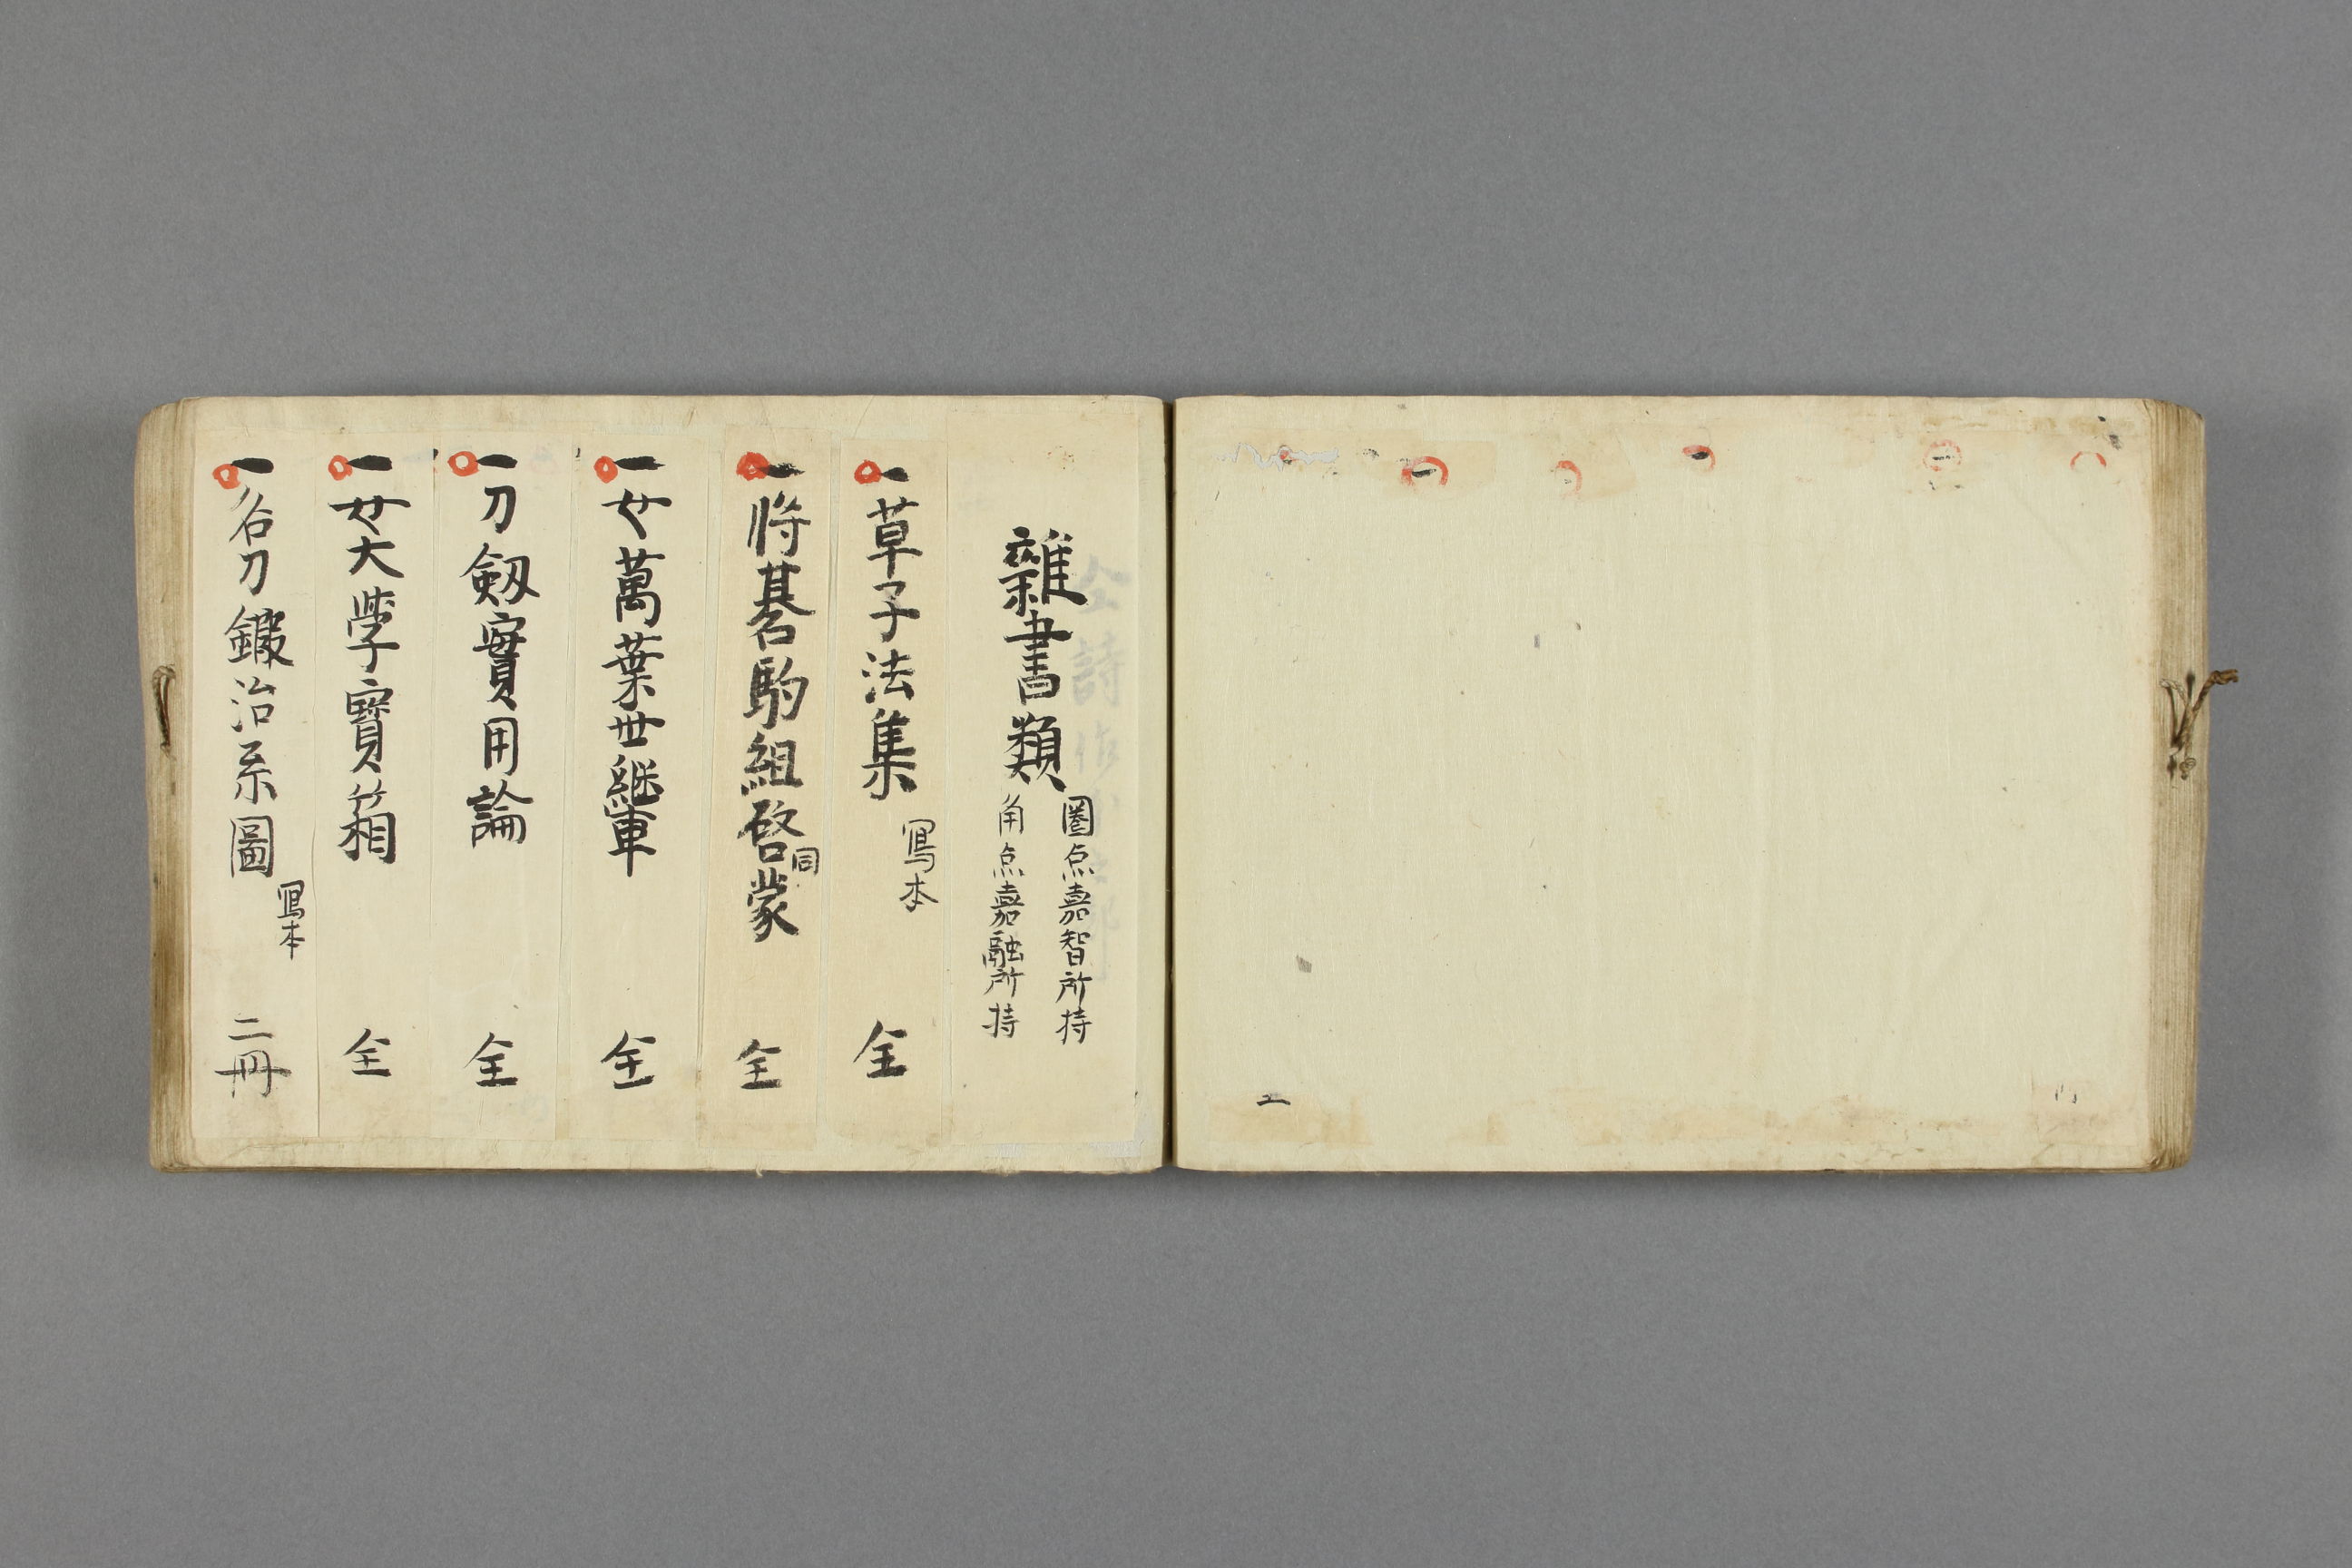 雜書類
圏点嘉智所持
角点嘉融所持
一草子法集 寫本 全
一将棊駒組啓蒙 同 全
一女萬葉世継軍 全
一刀劔實用論 全
一女大学寳箱 全
一名刀鍛冶系圖 寫本 二冊